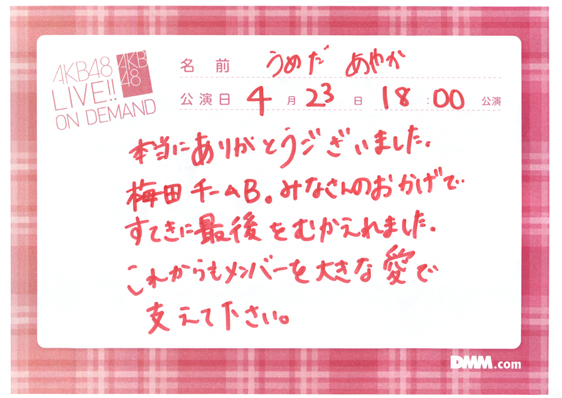 AKB48
LIVE!!
ON DEMAND
AKB
48
名前 うめだ あやか
公演日 4月23日 18:00 公演
本当にありがとうございました。
梅田チームB。みなさんのおかげで
すてきに最後をむかえれました。
これからもメンバーを大きな愛で
支えて下さい。
DMM.com